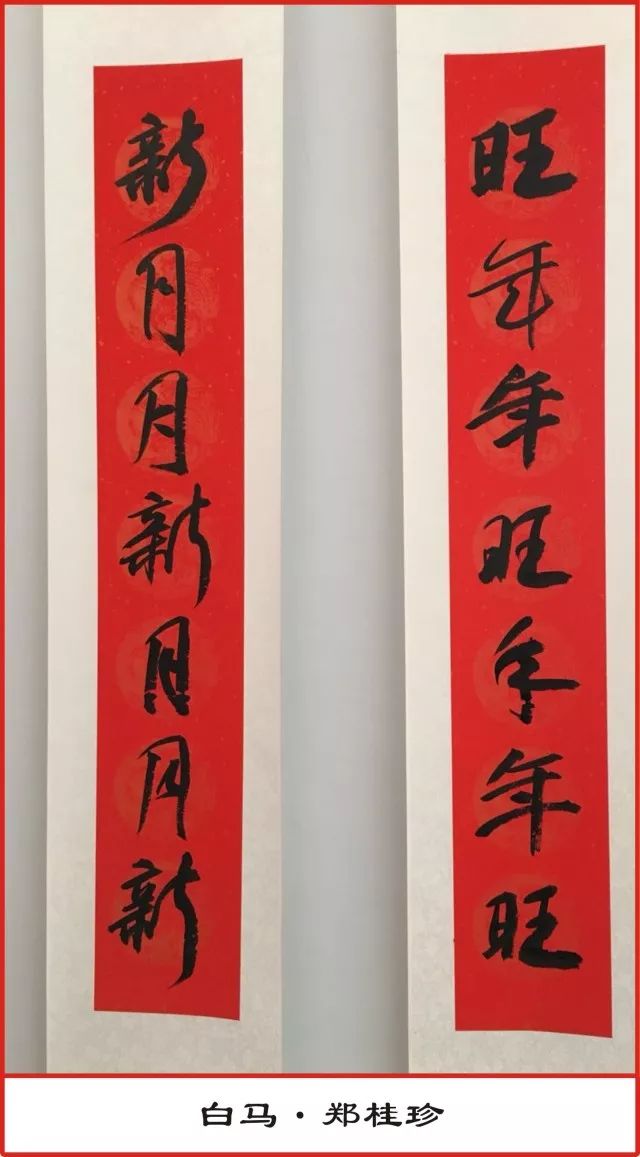 旺年年旺年年旺
新月月新月月新
白马·郑桂珍